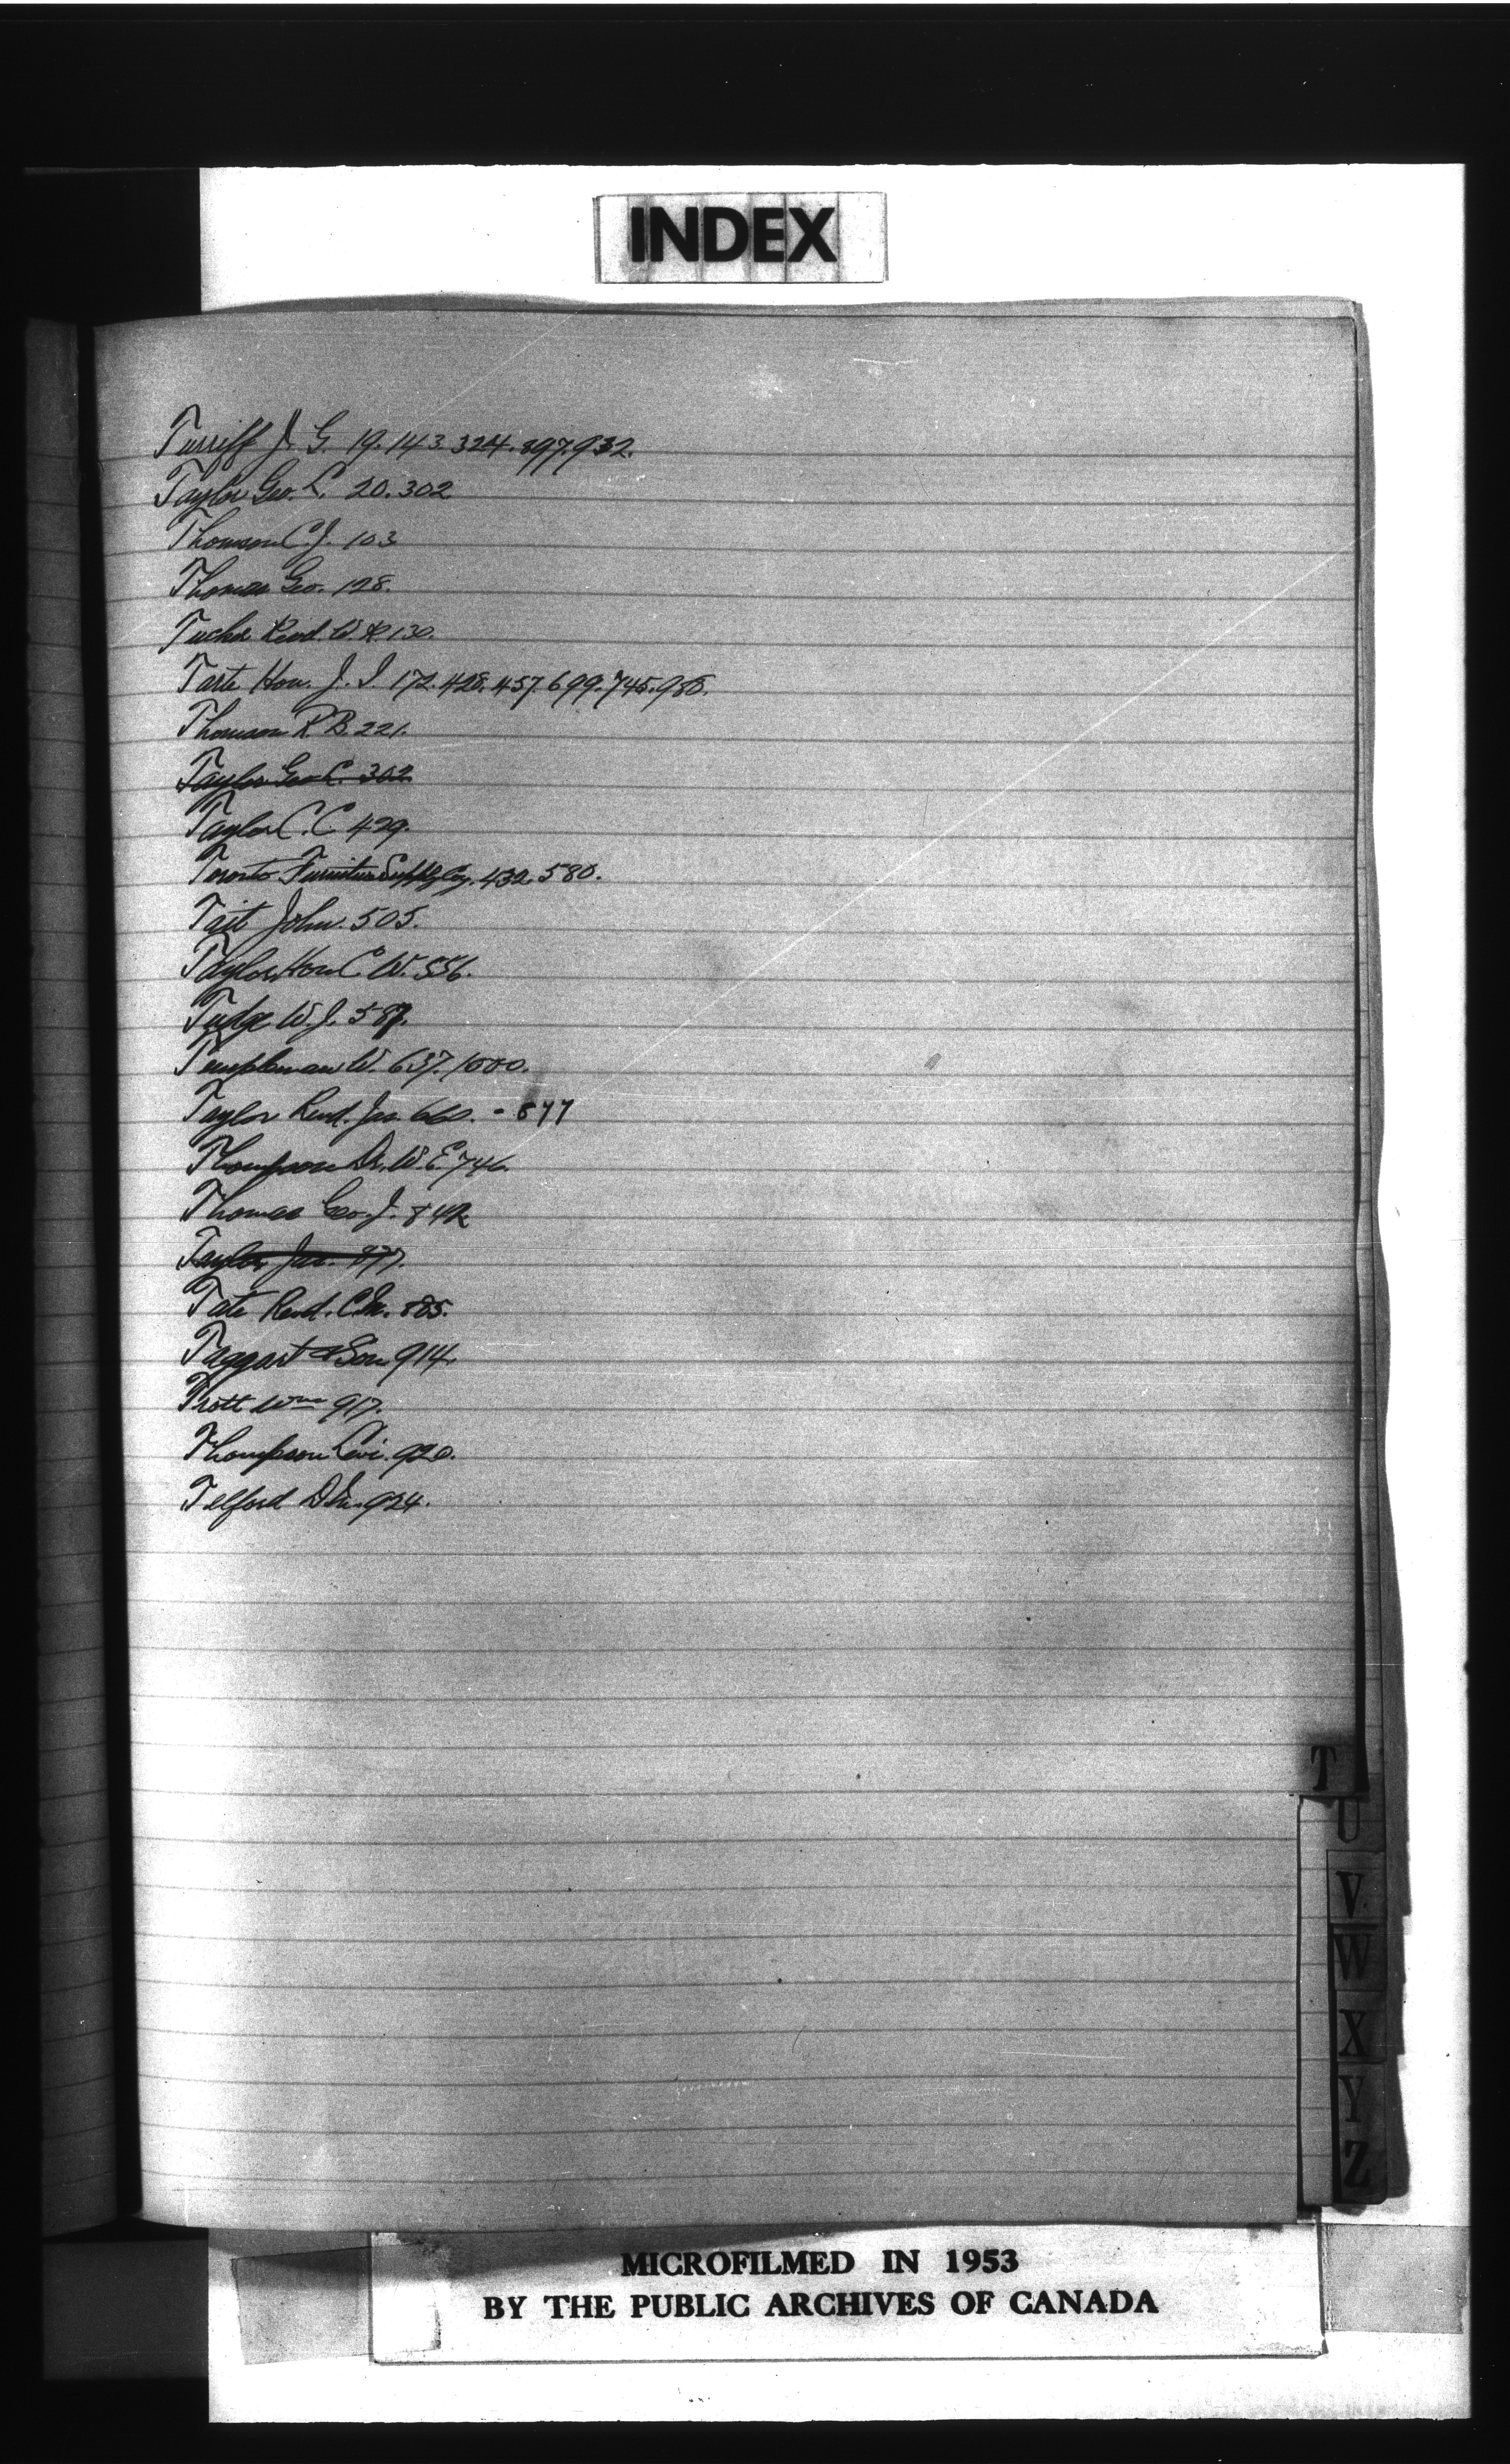 INDEX
Turriff J. G. 19. 143. 324. 897. 932.
Taylor Geo. L. 20. 302
Thomson C. J. 103
Thomas Geo. 128.
Tucker Revd. W. H. 130.
Tarte Hon. J. I. 172. 428. 457. 699. 745. 988.
Thomson R. B. 221.
Taylor Geo L. 302
Taylor C. C. 429.
Toronto Furniture Supply Coy. 432. 580.
Tait John. 505.
Taylor Hon C. W. 556.
Tudge W. J. 587.
Templeman W. 637. 1000.
Taylor Revd. Jas. 660. - 877
Thompson Dr. W. E. 746.
Thomas Geo. J. 842
Taylor Jas. 877.
Tate Revd. C. M. 885.
Taggart & Son 914.
Trott Wm 917.
Thompson Levi. 920.
Telford 924.
T
U
V
W
X
Y
Z
MICROFILMED IN 1953
BY THE PUBLIC ARCHIVES OF CANADA